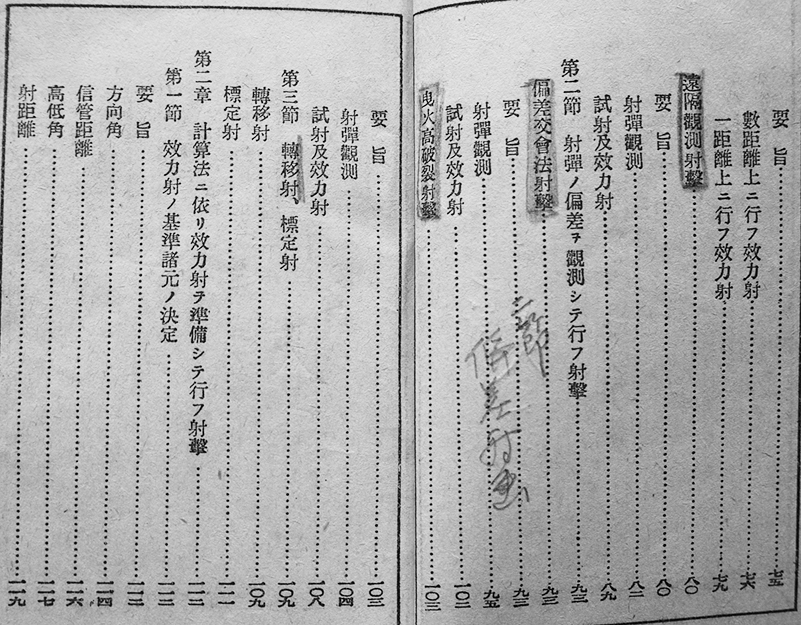 要旨……七五
數距離上ニ行フ效力射……七六
一距離上ニ行フ效力射……七九
遠隔觀測射擊……八〇
要旨……八〇
射彈觀測……八二
試射及效力射……八九
第二節 射彈ノ偏差ヲ觀測シテ行フ射擊……九三
偏差交會法射擊……九三
要旨……九三
射彈觀測……九五
試射及效力射……一〇二
曳火高破裂射擊……一〇三
要旨……一〇三
射彈觀測……一〇四
試射及效力射……一〇八
第三節 轉移射、標定射……一〇九
轉移射……一〇九
標定射……一一一
第二章 計算法ニ依リ效力射ヲ準備シテ行フ射擊……一一二
第一節 效力射ノ基準諸元ノ決定……一一二
要旨……一一二
方向角……一一四
信管距離……一一六
高低角……一一七
射距離……一一九